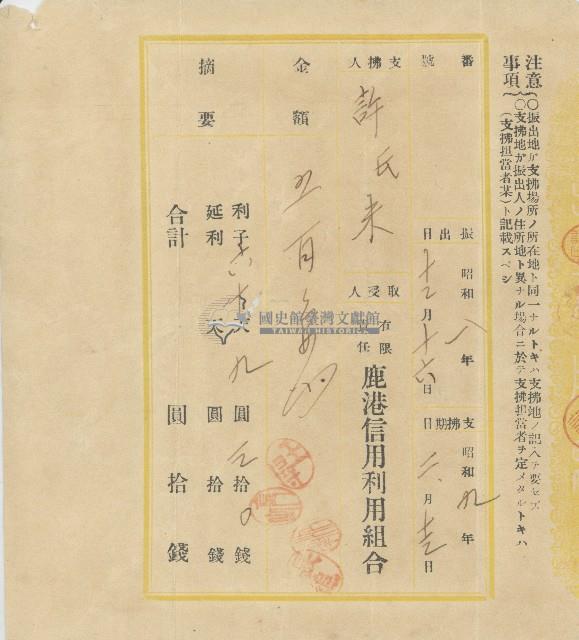 注意 〇振出地ガ支拂場所ノ所在地ト同一ナルトキハ支拂地ノ記入ヲ要セズ
事項 〇支拂地ガ振出人ノ住所地ト異ナル場合ニ於テ支拂担當者ヲ定メタルトキハ
(支拂担當者某)ト記載スベシ
番號
振出日 昭和八年十二月十六日
支拂期日 昭和九年二月
支拂人 許氏来
受取人 有限責任 鹿港信用利用組合
金額 五百
摘要
利子 九圓 拾 錢
延利 圓 拾 錢
合計 圓 拾 錢
國史館臺灣文獻館
TAIWAN HISTORICA